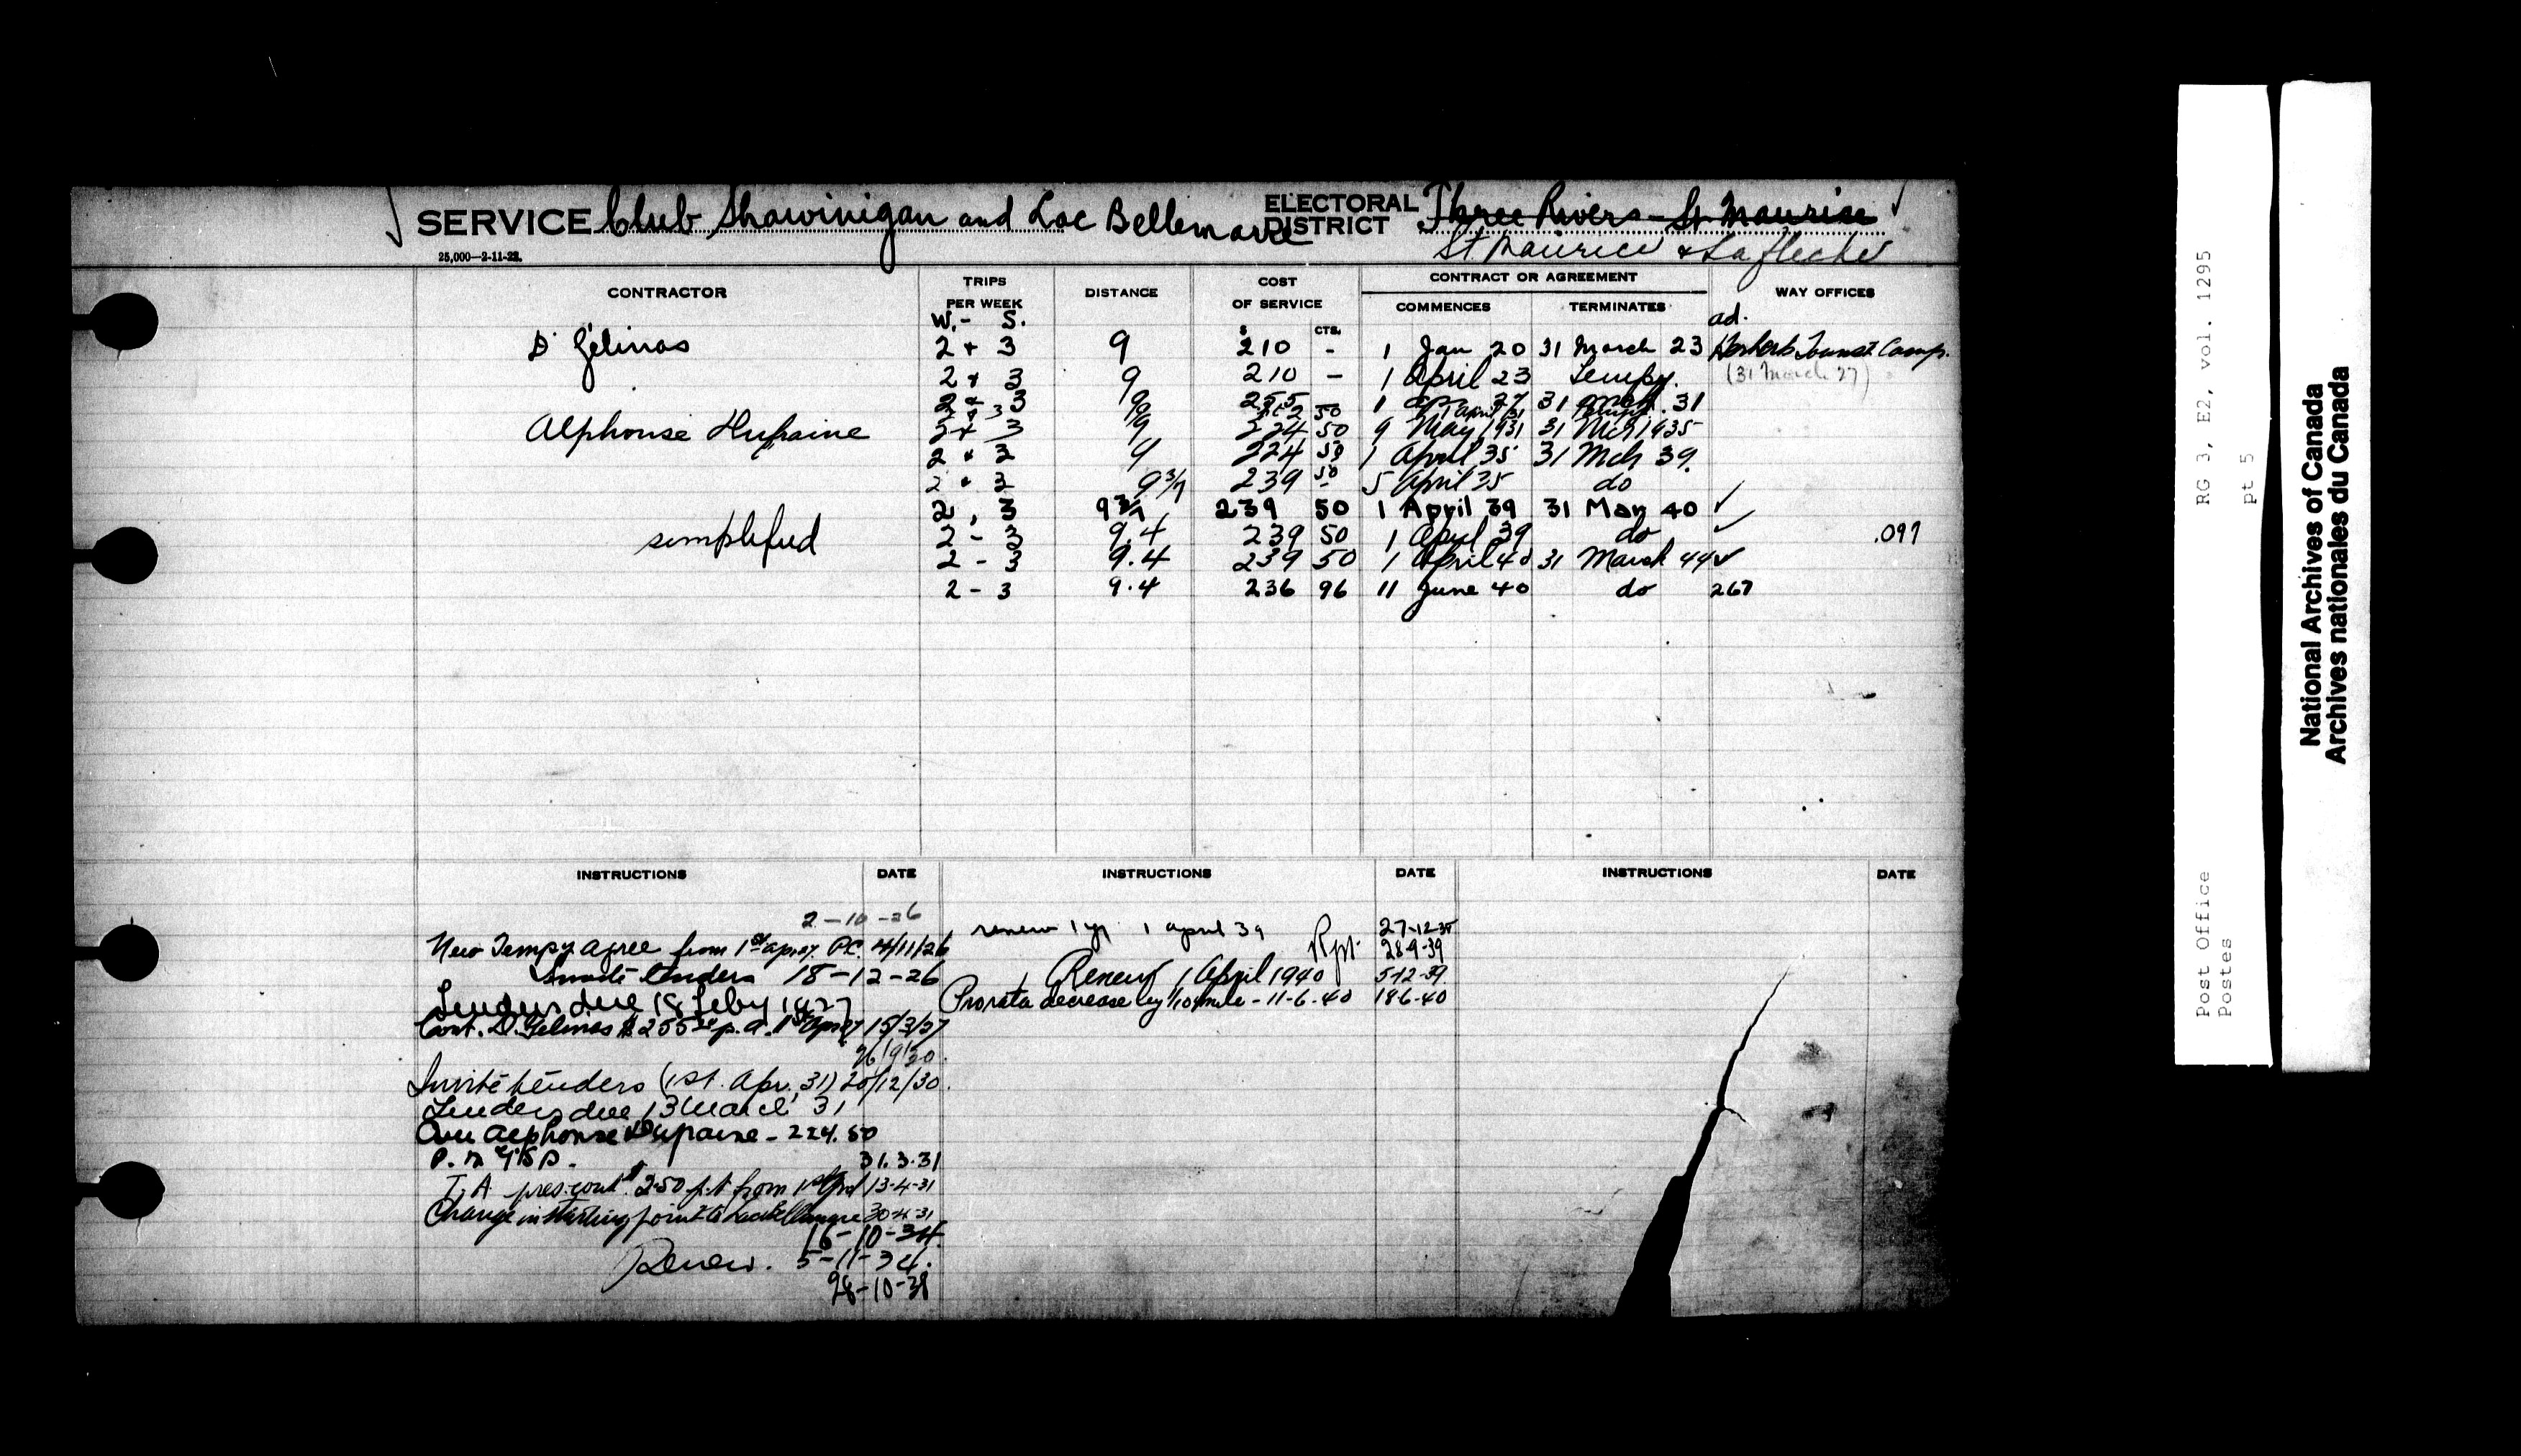 SERVICE Club Shawinigan and Lac Bellemare ELECTORAL DISTRICT Three Rivers - St Maurice
25,000—2-11-22. St. Maurice & Lafleche
CONTRACTOR TRIPS PER WEEK DISTANCE COST OF SERVICE CONTRACT OR AGREEMENT WAY OFFICES
COMMENCES TERMINATES
W. - S. $ CTS. ad.
D Gélinas 2 + 3 9 210 - 1 Jan 20 31 March 23 Tourist Camp.
2 + 3 9 210 - 1 April 23 Tempy. (31 March 27)
2 & 3 9 255 - 1 apr 27 31 mch. 31
2 & 3 9 50 1 April 31
Alphonse Dufraine 2 + 3 9 224 50 9 May 1931 31 Mch 1935
2 & 3 9 224 50 1 April 35 31 Mch 39.
2 & 3 9 3/7 239 50 5 April 35 do
2, 3 9 3/7 239 50 1 April 39 31 Mar 40 ✓
simplified 2 - 3 9.4 239 50 1 April 39 do ✓ .097
2 - 3 9.4 239 50 1 April 40 31 March 44 ✓
2 - 3 9.4 236 96 11 June 40 do 267
INSTRUCTIONS DATE INSTRUCTIONS DATE INSTRUCTIONS DATE
2-10-26
New Tempy agree from 1st apr 27. P.C. 4/11/26
Invite tenders 18-12-26
Tenders due 18 Feby 1927
Cont. D. Gelinas $255 p.a. 1st Apr 27 15/3/27
26/9/30.
Invite tenders (1st. Apr. 31) 20/12/30.
Tenders due 13 March 31
Alphonse Dupaine - 224.50
31.3.31
T.A. pres. cont. 250 from 1st Apl 13-4-31
Change in starting point to Lac Bellemare 30-4-31
16-10-34
Renew. 5-11-34.
28-10-38
renew 1 yr 1 april 39 27-12-38
Rpt. 28-9-39
Renew 1 April 1940 5-12-39
Prorata decrease by 1/10 mile - 11-6-40 18-6-40
Post Office RG 3, E2, vol. 1295
Postes pt 5
National Archives of Canada
Archives nationales du Canada